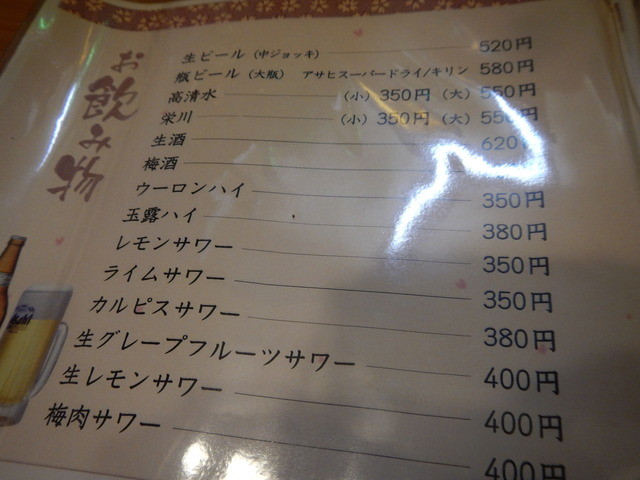 お飲み物
生ビール（中ジョッキ） 520円
瓶ビール（大瓶） アサヒスーパードライ/キリン 580円
高清水 （小）350円 （大）550円
栄川 （小）350円 （大）550円
生酒 620円
梅酒
ウーロンハイ 350円
玉露ハイ 380円
レモンサワー 350円
ライムサワー 350円
カルピスサワー 380円
生グレープフルーツサワー 400円
生レモンサワー 400円
梅肉サワー 400円